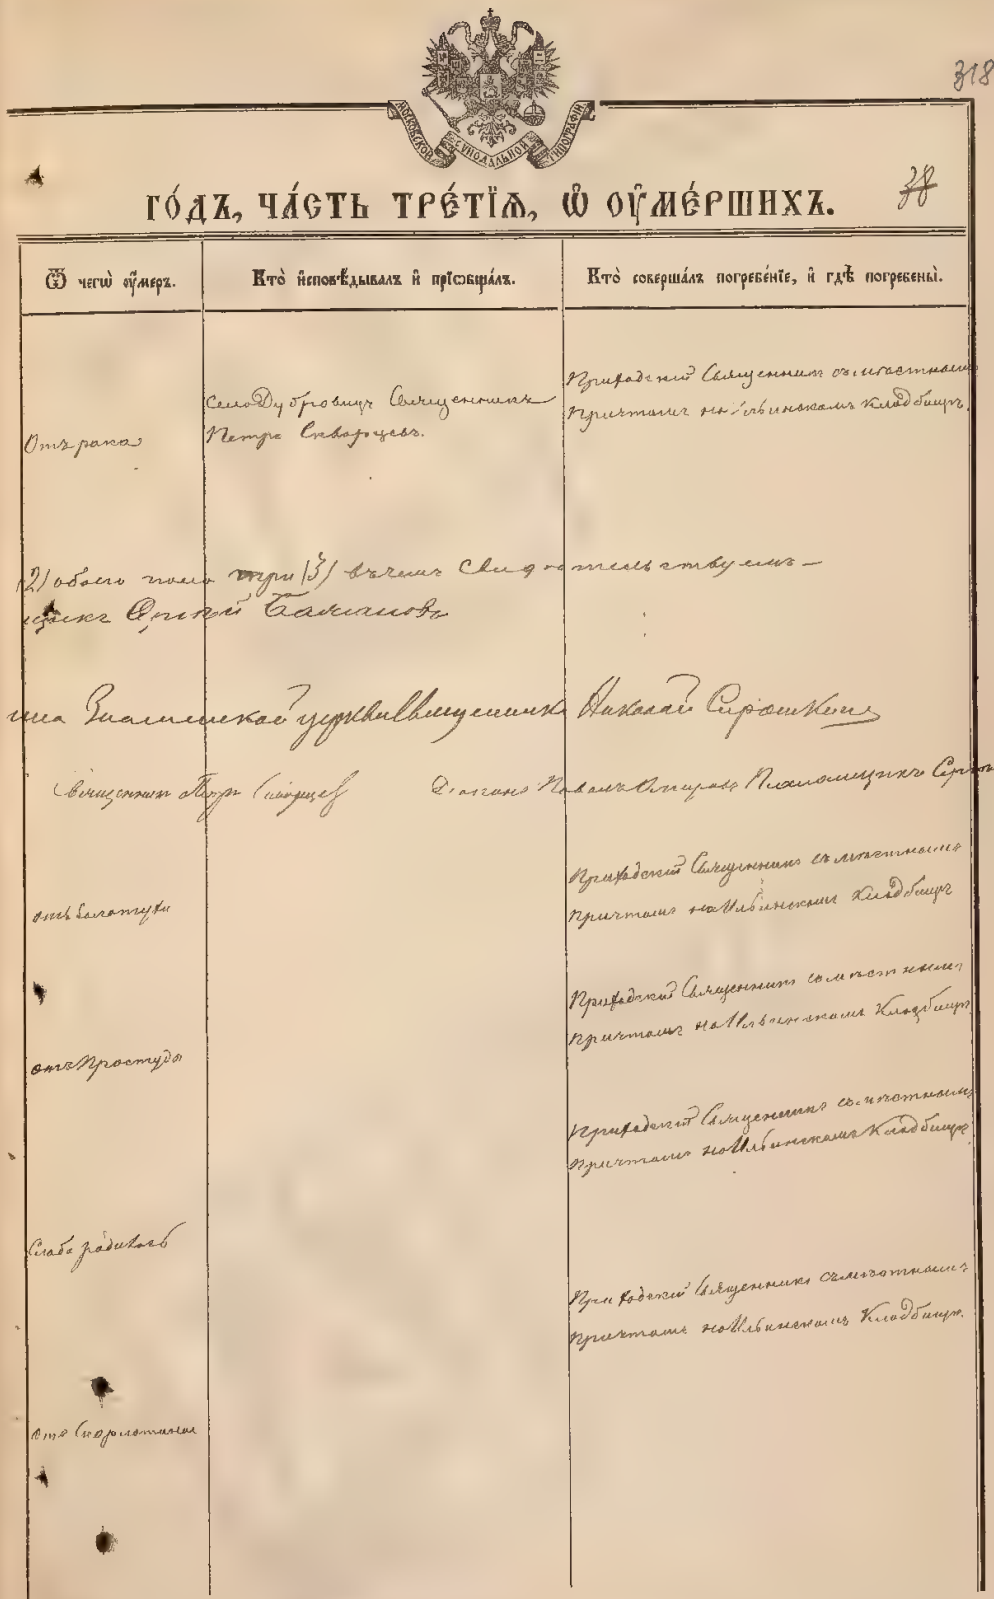 318
МОСКОВСКОЙ СУНОДАЛЬНОЙ ТИПОГРАФІИ
38
ГО́ДЪ, ЧА́СТЬ ТРЕ́ТІѦ, Ѡ҆ ОУ҆МЕ́РШИХЪ.
Ѿ чегѡ̀ оу҆́меръ.
Кто̀ и҆сповѣ́дывалъ и҆ прїѡбща́лъ.
Кто̀ соверша́лъ погребе́нїе, и҆ гдѣ̀ погребены̀.
Отъ рака
Села Дубровицъ Священникъ
Петръ Скворцевъ.
Приходскій Священникъ съ мѣстнымъ
Причтомъ на Ильинскомъ Кладбищѣ.
(2) обоего пола три (3) въ чемъ свидѣтельствуемъ
щикъ Сергѣй
Знаменской церкви Священникъ Николай
Священникъ Петръ Скворцевъ Діаконъ Павелъ Псаломщикъ Сергѣй
отъ болотухи
Приходскій Священникъ съ мѣстнымъ
причтомъ на Ильинскомъ Кладбищѣ
отъ Простуды
Приходскій Священникъ съ мѣстнымъ
причтомъ на Ильинскомъ Кладбищѣ
Слабо родилась
Приходскій Священникъ съ мѣстнымъ
Причтомъ на Ильинскомъ Кладбищѣ
отъ Скорлатины
Приходскій Священникъ съ мѣстнымъ
Причтомъ на Ильинскомъ Кладбищѣ.